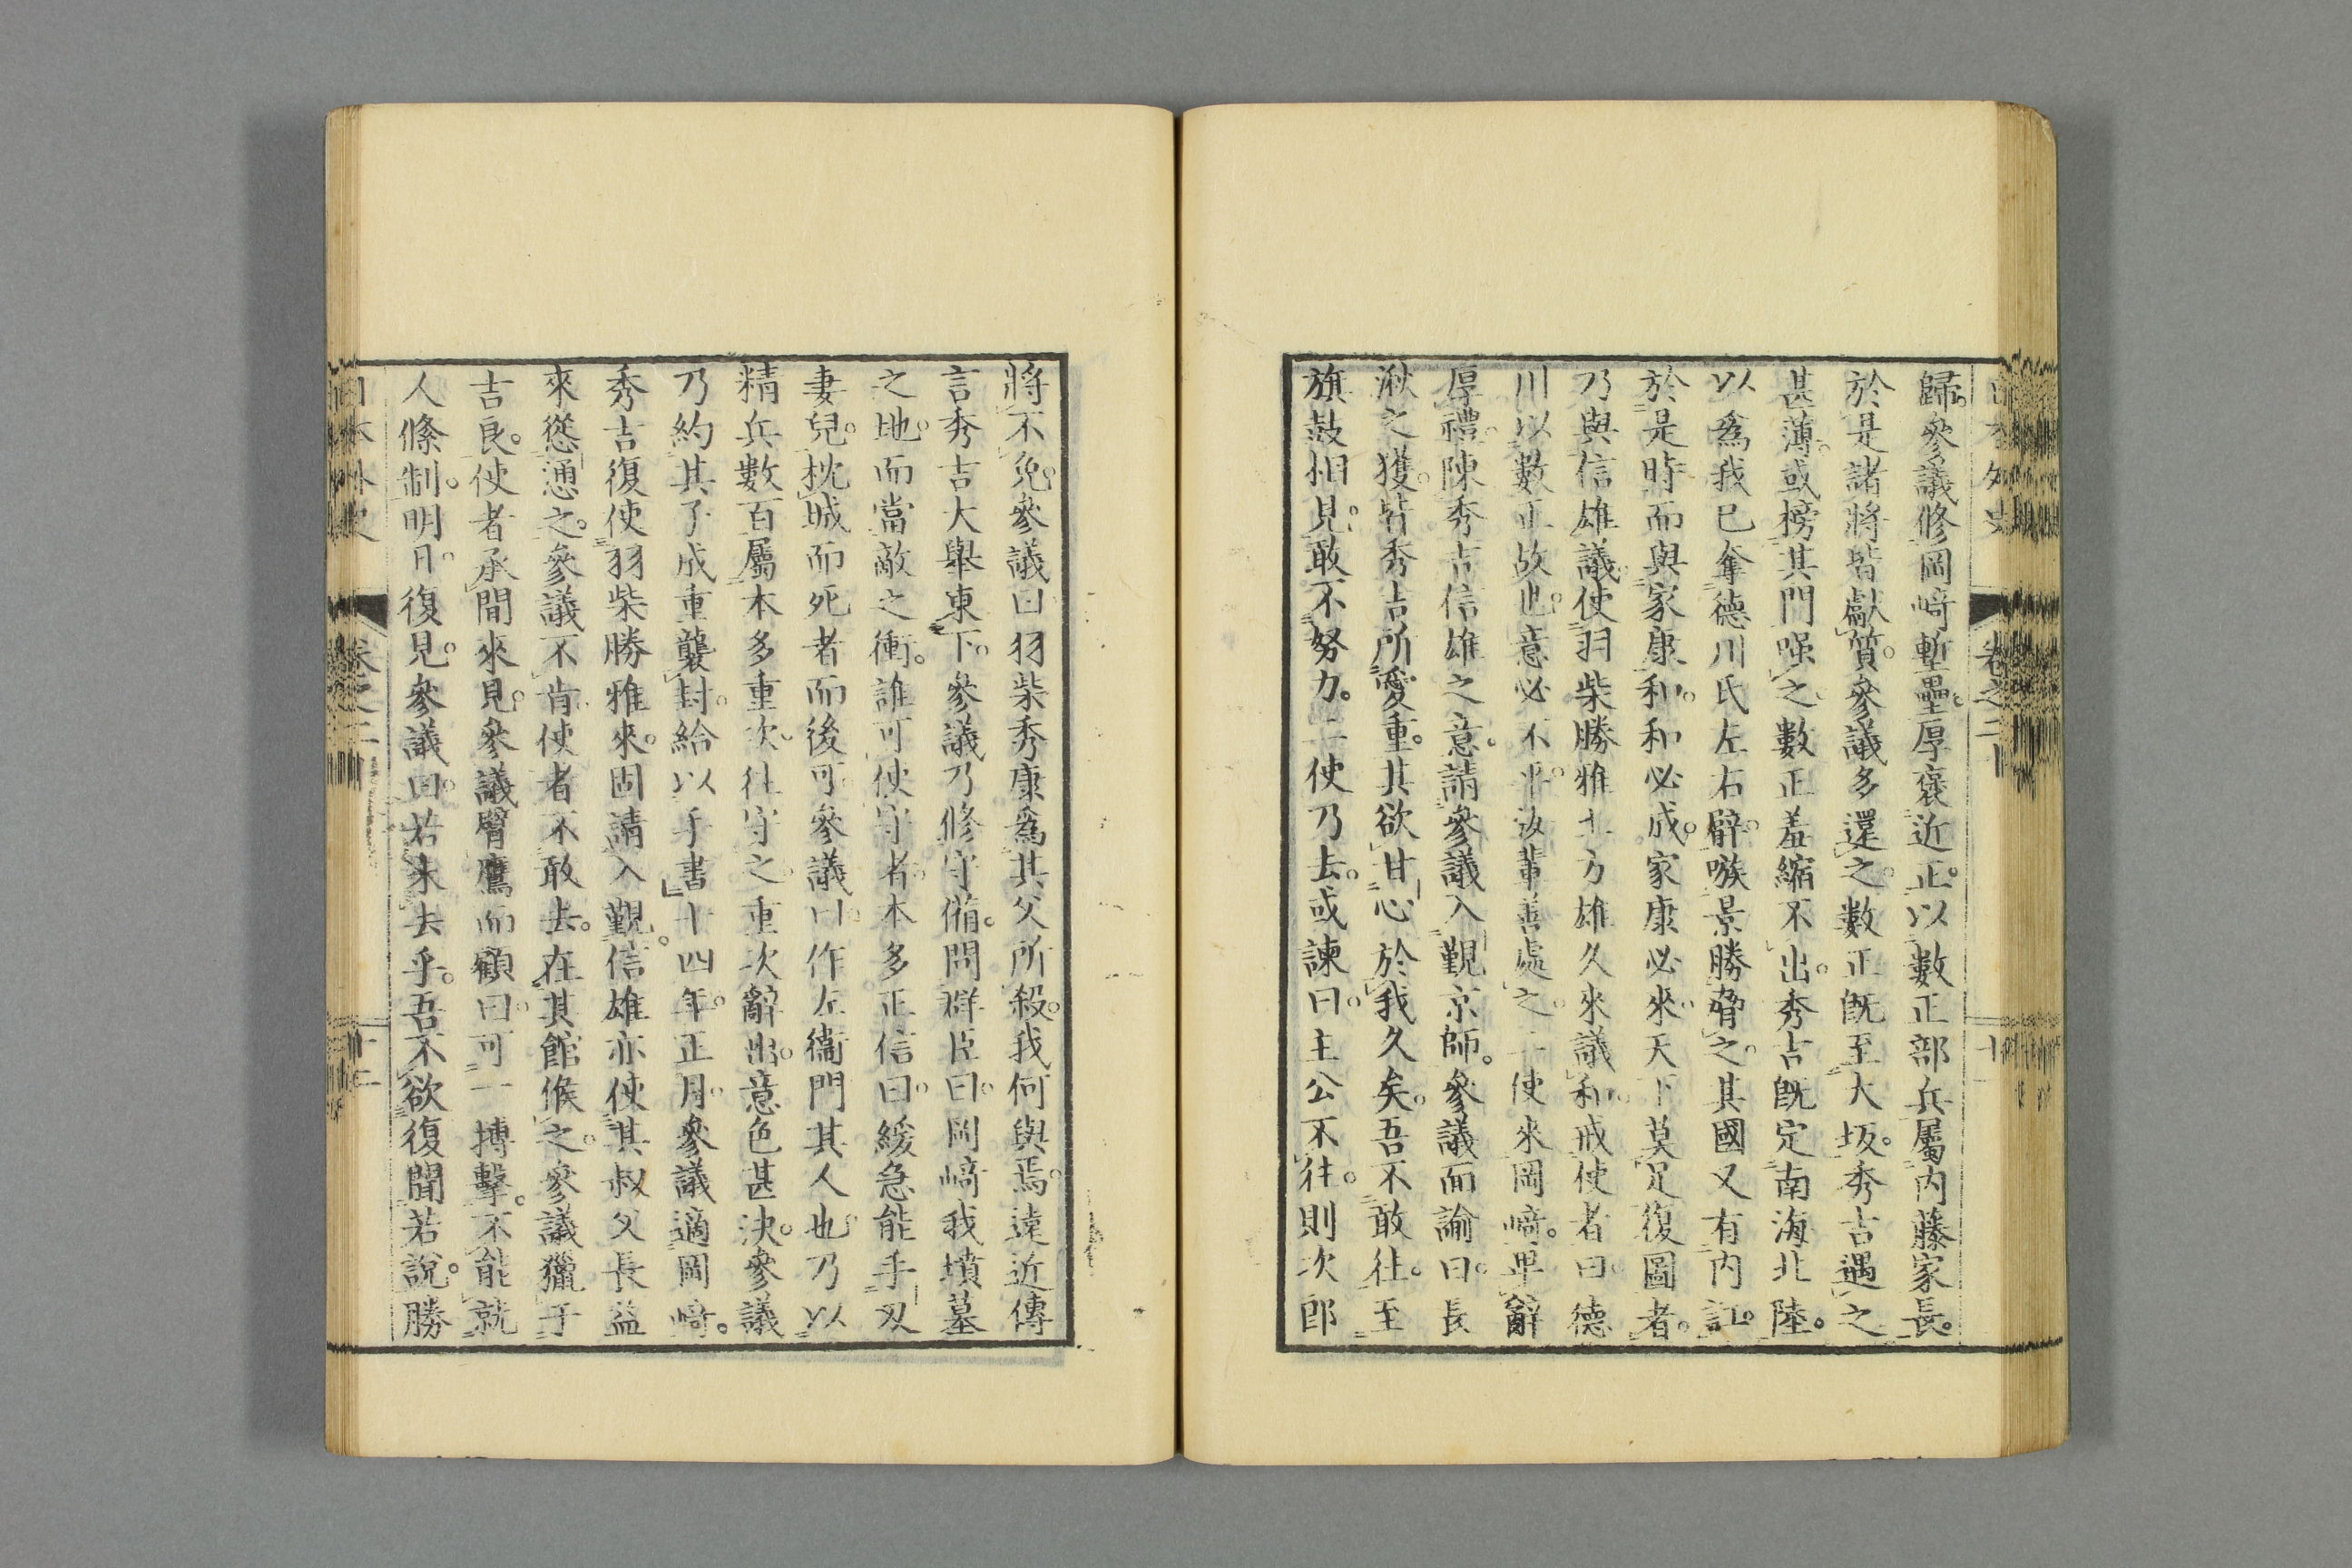 日本外史
卷之二十
歸。參議修岡﨑塹壘。厚褒近正。以數正部兵屬內藤家長。
於是諸將皆獻質。參議多還之。數正既至大坂。秀吉遇之
甚薄。或榜其門嗤之。數正羞縮不出。秀吉既定南海北陸。
以爲我已奪德川氏左右臂。嗾景勝脅之。其國又有內訌。
於是時而與家康和。和必成。家康必來。天下莫足復圖者。
乃與信雄議。使羽柴勝雅土方雄久來議和。戒使者曰。德
川以數正故也。意必不平。汝輩善處之。二使來岡﨑。卑辭
厚禮。陳秀吉信雄之意。請參議入覲京師。參議面諭曰。長
湫之獲。皆秀吉所愛重。其欲甘心於我久矣。吾不敢往。至
旗鼓相見。敢不努力。二使乃去。或諫曰。主公不往。則次郎
將不免。參議曰。羽柴秀康爲其父所殺。我何與焉。遠近傳
言秀吉大舉東下。參議乃修守備。問群臣曰。岡﨑我墳墓
之地。而當敵之衝。誰可使守者。本多正信曰。緩急能手刃
妻兒。枕城而死者而後可。參議曰。作左衞門其人也。乃以
精兵數百屬本多重次。往守之。重次辭出。意色甚決。參議
乃約其子成重襲封。給以手書。十四年。正月。參議適岡﨑。
秀吉復使羽柴勝雅來。固請入覲。信雄亦使其叔父長益
來慫慂之。參議不肯。使者不敢去。在其館候之。參議獵于
吉良。使者承間來見。參議臂鷹而顧曰。可一搏擊。不能就
人絛制。明日。復見。參議曰。若未去乎。吾不欲復聞若說。勝
日本外史
卷之二十
十二